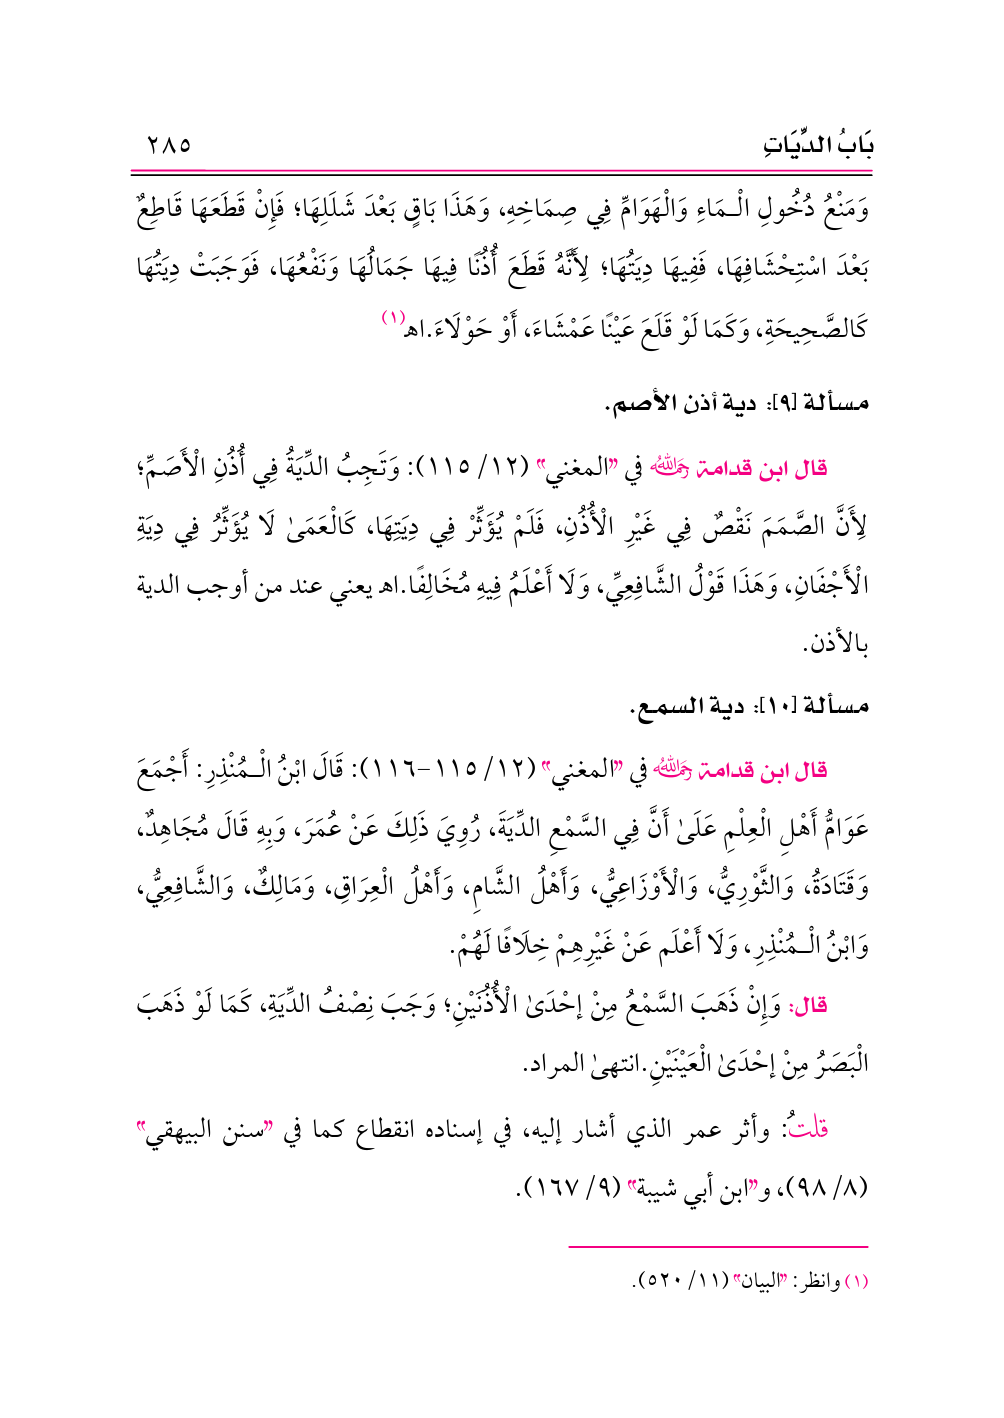 بَابُ الدِّيَاتِ ٢٨٥
وَمَنْعُ دُخُولِ الْـمَاءِ وَالْهَوَامِّ فِي صِمَاخِهِ، وَهَذَا بَاقٍ بَعْدَ شَلَلِهَا؛ فَإِنْ قَطَعَهَا قَاطِعٌ
بَعْدَ اسْتِحْشَافِهَا، فَفِيهَا دِيَتُهَا؛ لِأَنَّهُ قَطَعَ أُذُنًا فِيهَا جَمَالُهَا وَنَفْعُهَا، فَوَجَبَتْ دِيَتُهَا
كَالصَّحِيحَةِ، وَكَمَا لَوْ قَلَعَ عَيْنًا عَمْشَاءَ، أَوْ حَوْلَاءَ.اهـ(١)
مسألة [٩]: دية أذن الأصم.
قال ابن قدامة رحمه الله في "المغني" (١٢/ ١١٥): وَتَجِبُ الدِّيَةُ فِي أُذُنِ الْأَصَمِّ؛
لِأَنَّ الصَّمَمَ نَقْصٌ فِي غَيْرِ الْأُذُنِ، فَلَمْ يُؤَثِّرْ فِي دِيَتِهَا، كَالْعَمَىٰ لَا يُؤَثِّرُ فِي دِيَةِ
الْأَجْفَانِ، وَهَذَا قَوْلُ الشَّافِعِيِّ، وَلَا أَعْلَمُ فِيهِ مُخَالِفًا.اهـ يعني عند من أوجب الدية
بالأذن.
مسألة [١٠]: دية السمع.
قال ابن قدامة رحمه الله في "المغني" (١٢/ ١١٥-١١٦): قَالَ ابْنُ الْـمُنْذِرِ: أَجْمَعَ
عَوَامُّ أَهْلِ الْعِلْمِ عَلَىٰ أَنَّ فِي السَّمْعِ الدِّيَةَ، رُوِيَ ذَلِكَ عَنْ عُمَرَ، وَبِهِ قَالَ مُجَاهِدٌ،
وَقَتَادَةُ، وَالثَّوْرِيُّ، وَالْأَوْزَاعِيُّ، وَأَهْلُ الشَّامِ، وَأَهْلُ الْعِرَاقِ، وَمَالِكٌ، وَالشَّافِعِيُّ،
وَابْنُ الْـمُنْذِرِ، وَلَا أَعْلَم عَنْ غَيْرِهِمْ خِلَافًا لَهُمْ.
قال: وَإِنْ ذَهَبَ السَّمْعُ مِنْ إحْدَىٰ الْأُذُنَيْنِ؛ وَجَبَ نِصْفُ الدِّيَةِ، كَمَا لَوْ ذَهَبَ
الْبَصَرُ مِنْ إحْدَىٰ الْعَيْنَيْنِ.انتهىٰ المراد.
قلتُ: وأثر عمر الذي أشار إليه، في إسناده انقطاع كما في "سنن البيهقي"
(٨/ ٩٨)، و"ابن أبي شيبة" (٩/ ١٦٧).
(١) وانظر: "البيان" (١١/ ٥٢٠).